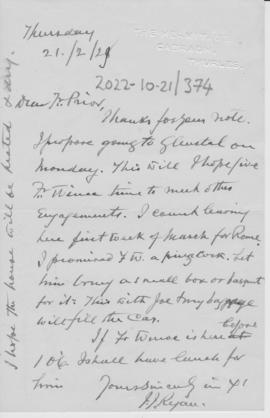 Thursday
THE
CASHEL
THURLES
21/2/29
2022-10-21/374
Dear Fr. Prior,
Thanks for your note.
I propose going to Glenstal on
Monday. This will I hope give
Fr Winoc time to meet other
Engagements. I count leaving
here first week of March for Rome.
I promised Fr W. a pring clock. Let
him bring a small box or basket
for it. This with Joe & my baggage
will fill the car.
If Fr Winoc is here before
1 o'c I shall have lunch for
him
Yours Sincerely in Xt
JJ Ryan.
I hope the house will be heated & dry.